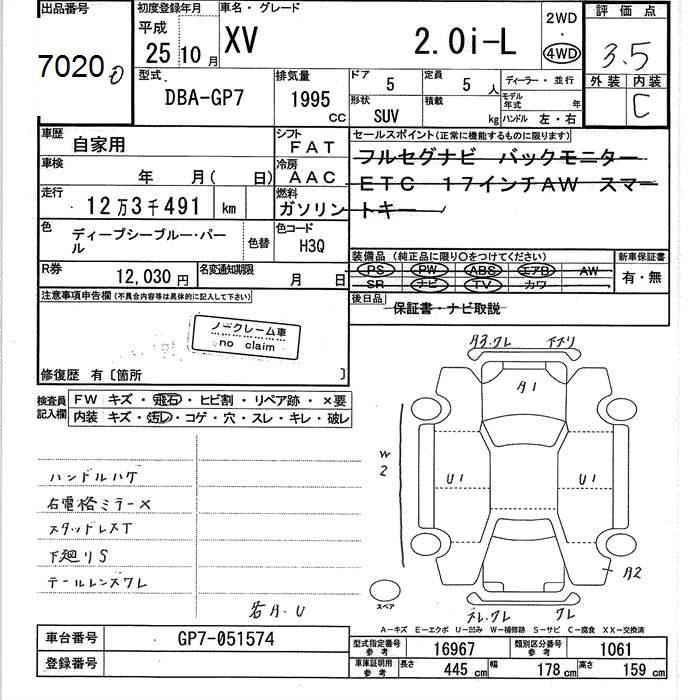 出品番号 初度登録年月 車名・グレード 2WD・4WD 評価点
70200 平成25年10月 XV 2.0i-L 3.5
型式 排気量 ドア 5 定員 5人 ディーラー・並行 外装 内装
DBA-GP7 1995cc 形状 SUV 積載 kg モデル年式 年 ハンドル 左・右 C
車歴 自家用 シフト FAT セールスポイント(正常に機能するものに限ります)
車検 年 月( 日) 冷房 AAC フルセグナビ バックモニター
走行 12万3千491 km 燃料 ガソリン ETC 17インチAW スマー
トキー
色 ディープシーブルー・パール 色替 色コード H3Q
装備品(純正品に限り○をつけてください) 新車保証書
PS PW ABS エアB AW 有・無
SR ナビ TV カワ
R券 12,030円 名変通知期限 月 日
後日品 保証書・ナビ取説
注意事項申告欄(不具合内容等は具体的に記入して下さい)
ノークレーム車
no claim
修復歴 有〔箇所 〕
検査員記入欄 FW キズ・飛石・ヒビ割・リペア跡・×要
内装 キズ・汚レ・コゲ・穴・スレ・キレ・破レ
ハンドルハゲ
右電格ミラー×
スタッドレスT
下廻りS
テールレンズワレ
各A・U
A3.ワレ
A1
W2
U1 U1
A2
スペア
ワレ
A-キズ E-エクボ U-凹み W-補修跡 S-サビ C-腐食 XX-交換済
車台番号 GP7-051574 型式指定番号 参考 16967 類別区分番号 参考 1061
登録番号 車庫証明用 参考 長さ 445cm 幅 178cm 高さ 159cm